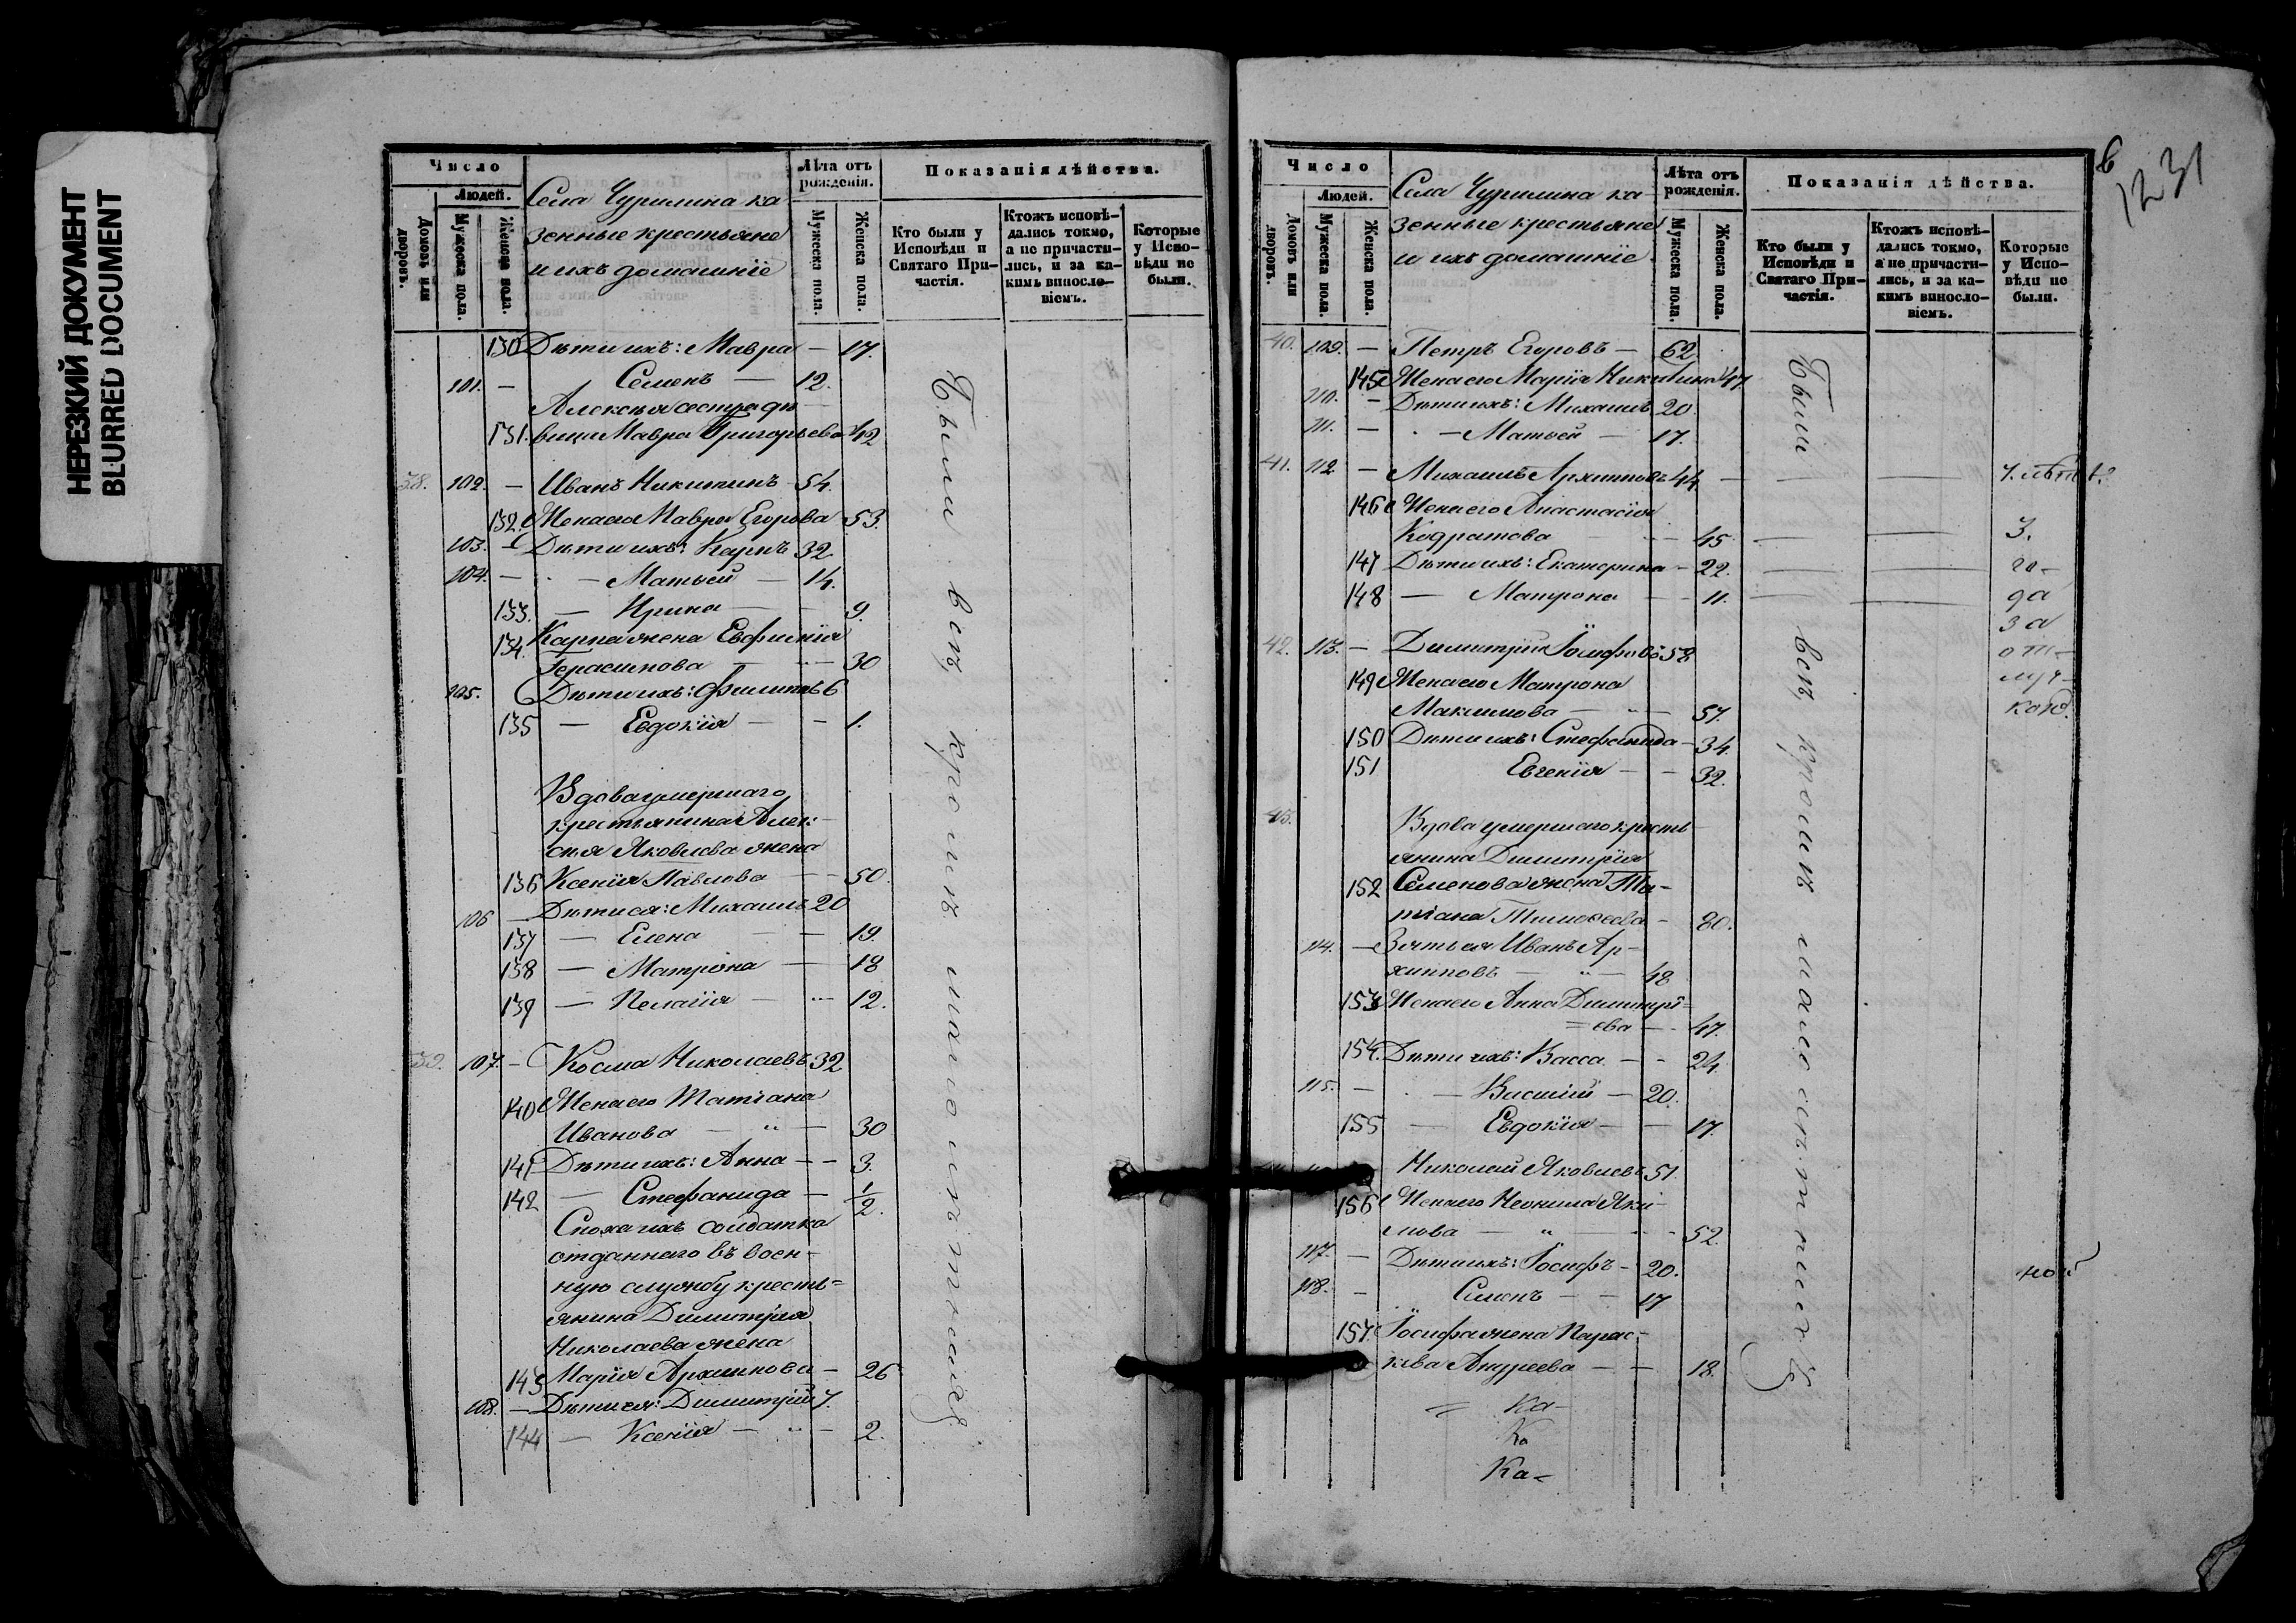 НЕРЕЗКИЙ ДОКУМЕНТ
BLURRED DOCUMENT
Число
Людей.
Домовъ или дворовъ.
Мужеска пола.
Женска пола.
Села Чурилина ка
зенные крестьяне
и ихъ домашніе
Лѣта отъ рожденія.
Мужеска пола.
Женска пола.
Показанія дѣйства.
Кто были у Исповѣди и Святаго Причастія.
Ктожъ исповѣдались токмо, а не причастились, и за какимъ винословіемъ.
Которые у Исповѣди не были.
130 Дѣти ихъ: Мавра — 17.
101. — Семенъ — 12.
Алексѣя сестра дѣ
131. вица Мавра Григорьева 42
38. 102. — Иванъ Никитинъ 54.
132. Жена его Мавра Егорова 53.
103. — Дѣти ихъ: Карпъ 32
104. — — Матѳей — 14.
133. — Ирина — 9.
134. Карпа жена Евфимія
Герасимова — 30
105. Дѣти ихъ: Филиппъ 6
135 — Евдокія — — 1.
Вдова умершаго
крестьянина Алек-
сѣя Яковлева жена
136 Ксенія Павлова — — 50.
106 — Дѣти ея: Михаилъ 20
137 — Елена — 19.
138 — Матрона — 18
139 — Пелагія — 12.
39. 107. — Косма Николаевъ 32
140 Жена его Татіана
Иванова — „ — 30
141 Дѣти ихъ: Анна — — 3.
142 — Стефанида — 1/2.
Сноха ихъ солдатка
отданнаго въ воен-
ную службу кресть=
янина Димитрія
Николаева жена
143 Марія Архипова — 26
108. — Дѣти ея: Димитрій 7.
144 — Ксенія — „ — 2.
Были всѣ, кромѣ малолѣтныхъ
6
1231
Число
Людей.
Домовъ или дворовъ.
Мужеска пола.
Женска пола.
Села Чурилина ка
зенные крестьяне
и ихъ домашніе
Лѣта отъ рожденія.
Мужеска пола.
Женска пола.
Показанія дѣйства.
Кто были у Исповѣди и Святаго Причастія.
Ктожъ исповѣдались токмо, а не причастились, и за какимъ винословіемъ.
Которые у Исповѣди не были.
40. 109. — Петръ Егоровъ — 62.
145 Жена его Марія Никитина 47.
110. — Дѣти ихъ: Михаилъ 20.
111. — — Матѳей — 17.
41. 112. — Михаилъ Архиповъ 44.
146 Жена его Анастасія
Кодратова — 45
147 Дѣти ихъ: Екатерина — 22.
148 — Матрона — — 11.
42. 113. — Димитрій Іосифовъ 58
149 Жена его Матрона
Максимова — „ — 57.
150 Дѣти ихъ: Стефанида — 34.
151 Евгенія — — 32.
43. Вдова умершаго кресть-
янина Димитрія
152 Семенова жена Та-
тіана Тимоѳеева — 80.
114. — Зять ея Иванъ Ар-
хиповъ — „ — 48
153 Жена его Анна Димитрі=
=ева — 47.
154. Дѣти ихъ: Васса — — 24.
115. — — Василій — 20.
155 — Евдокія — — 17.
Николай Яковлевъ 51.
156 Жена его Неонила Яки-
мова — „ — 52.
117. — Дѣти ихъ: Іосифъ — 20.
118. — Симонъ — — 17
157. Іосифа жена Парас-
кева Андреева — — 18.
= Ка-
Ка
Ка-
Были всѣ, кромѣ малолѣтныхъ
3.
го-
да
за
от-
луч-
кою.